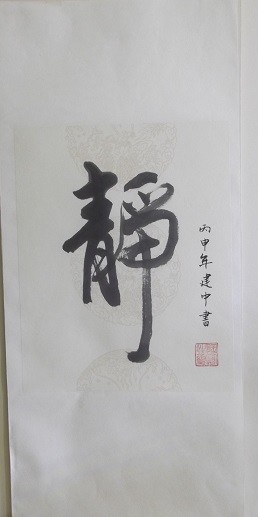 靜
丙申年建中書